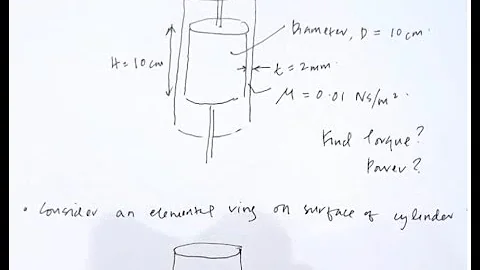 Diameter, D = 10 cm.
H = 10 cm
t = 2 mm.
μ = 0.01 Ns/m².
Find Torque?
Power?
• Consider an elemental ring on surface of cylinder